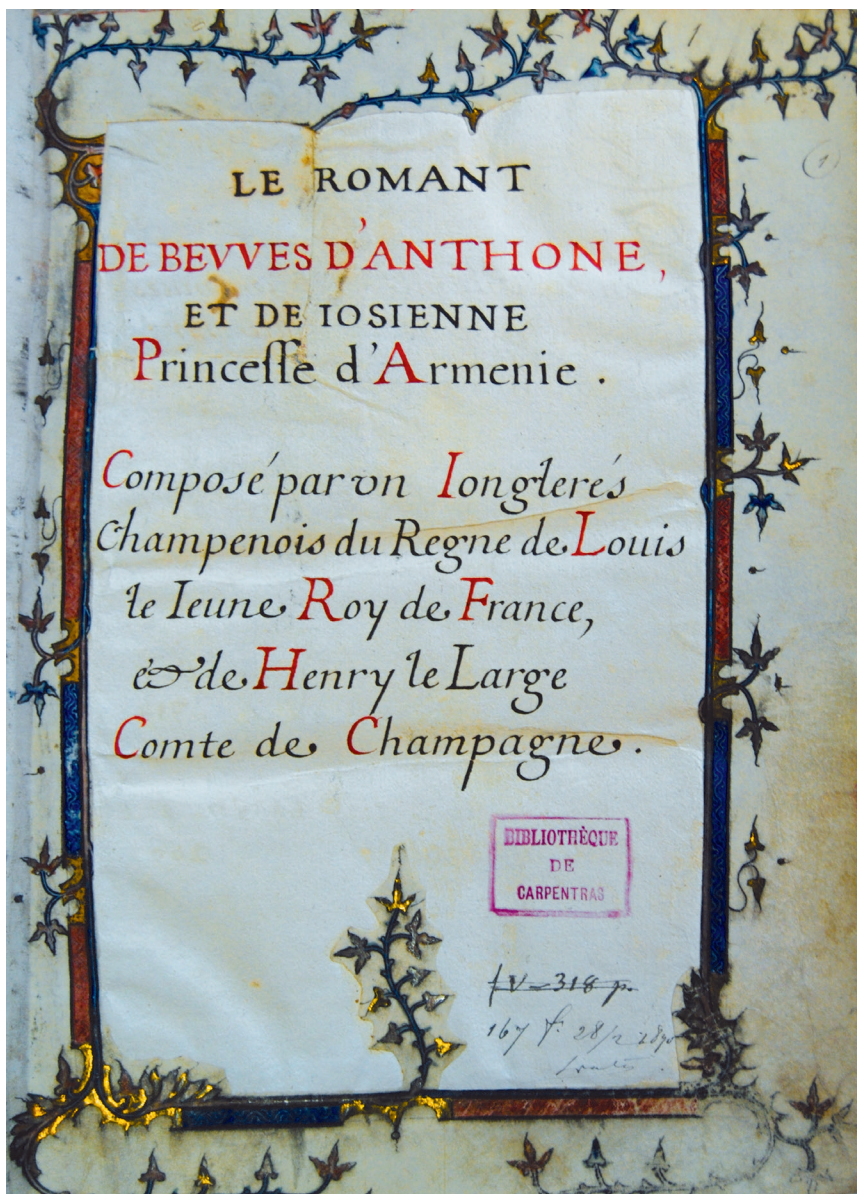 1
(1)
LE ROMANT
DE BEVVES D'ANTHONE,
ET DE IOSIENNE
Princeſſe d'Armenie .
Composé par vn Ionglerés
Champenois du Regne de Louis
le Ieune Roy de France,
& de Henry le Large
Comte de Champagne .
BIBLIOTHÈQUE
DE
CARPENTRAS
IV - 318 p.
167 f. 28/2 1890